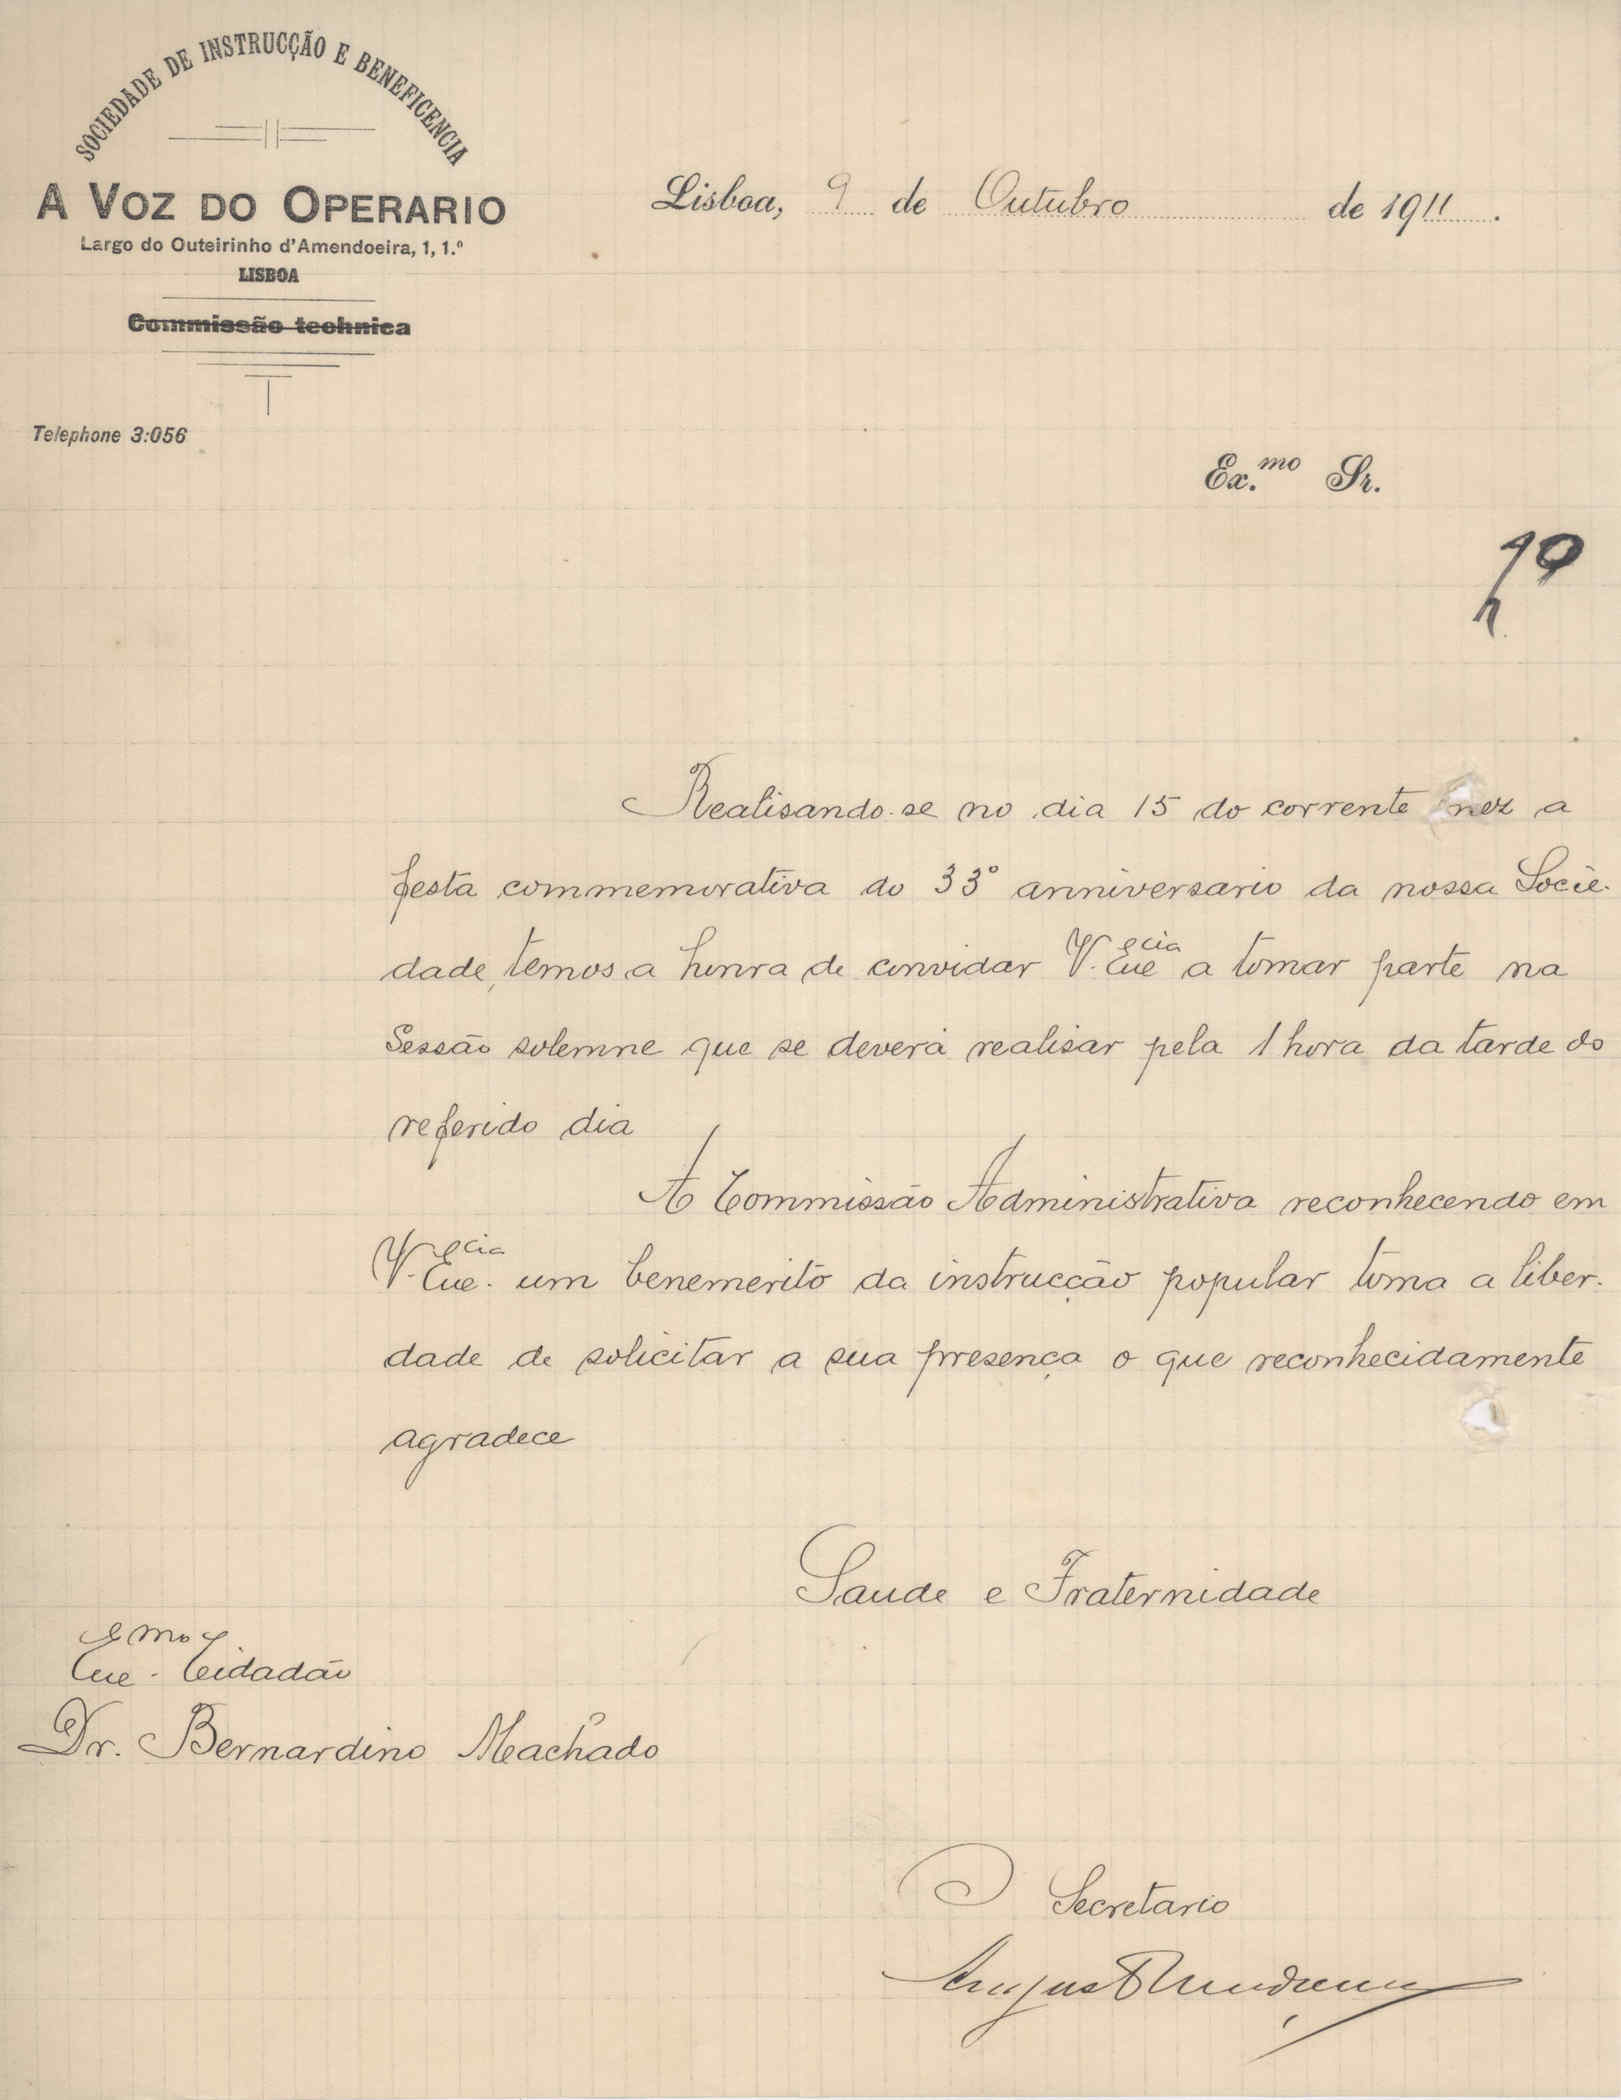 SOCIEDADE DE INSTRUCÇÃO E BENEFICENCIA
A VOZ DO OPERARIO
Largo do Outeirinho d'Amendoeira, 1, 1.º
LISBOA
Commissão technica
Telephone 3:056
Lisboa, 9 de Outubro de 1911.
Ex.mo Sr.
Realisando-se no dia 15 do corrente mez a
festa commemorativa do 33º anniversario da nossa Socie-
dade, temos a honra de convidar V. Exe cia a tomar parte na
Sessão solemne que se deverá realisar pela 1 hora da tarde do
referido dia
A Commissão Administrativa reconhecendo em
V. Exe. cia um benemerito da instrucção popular toma a liber-
dade de solicitar a sua presença o que reconhecidamente
agradece
Saude e Fraternidade
Exe. mo Cidadão
Dr. Bernardino Machado
O Secretario